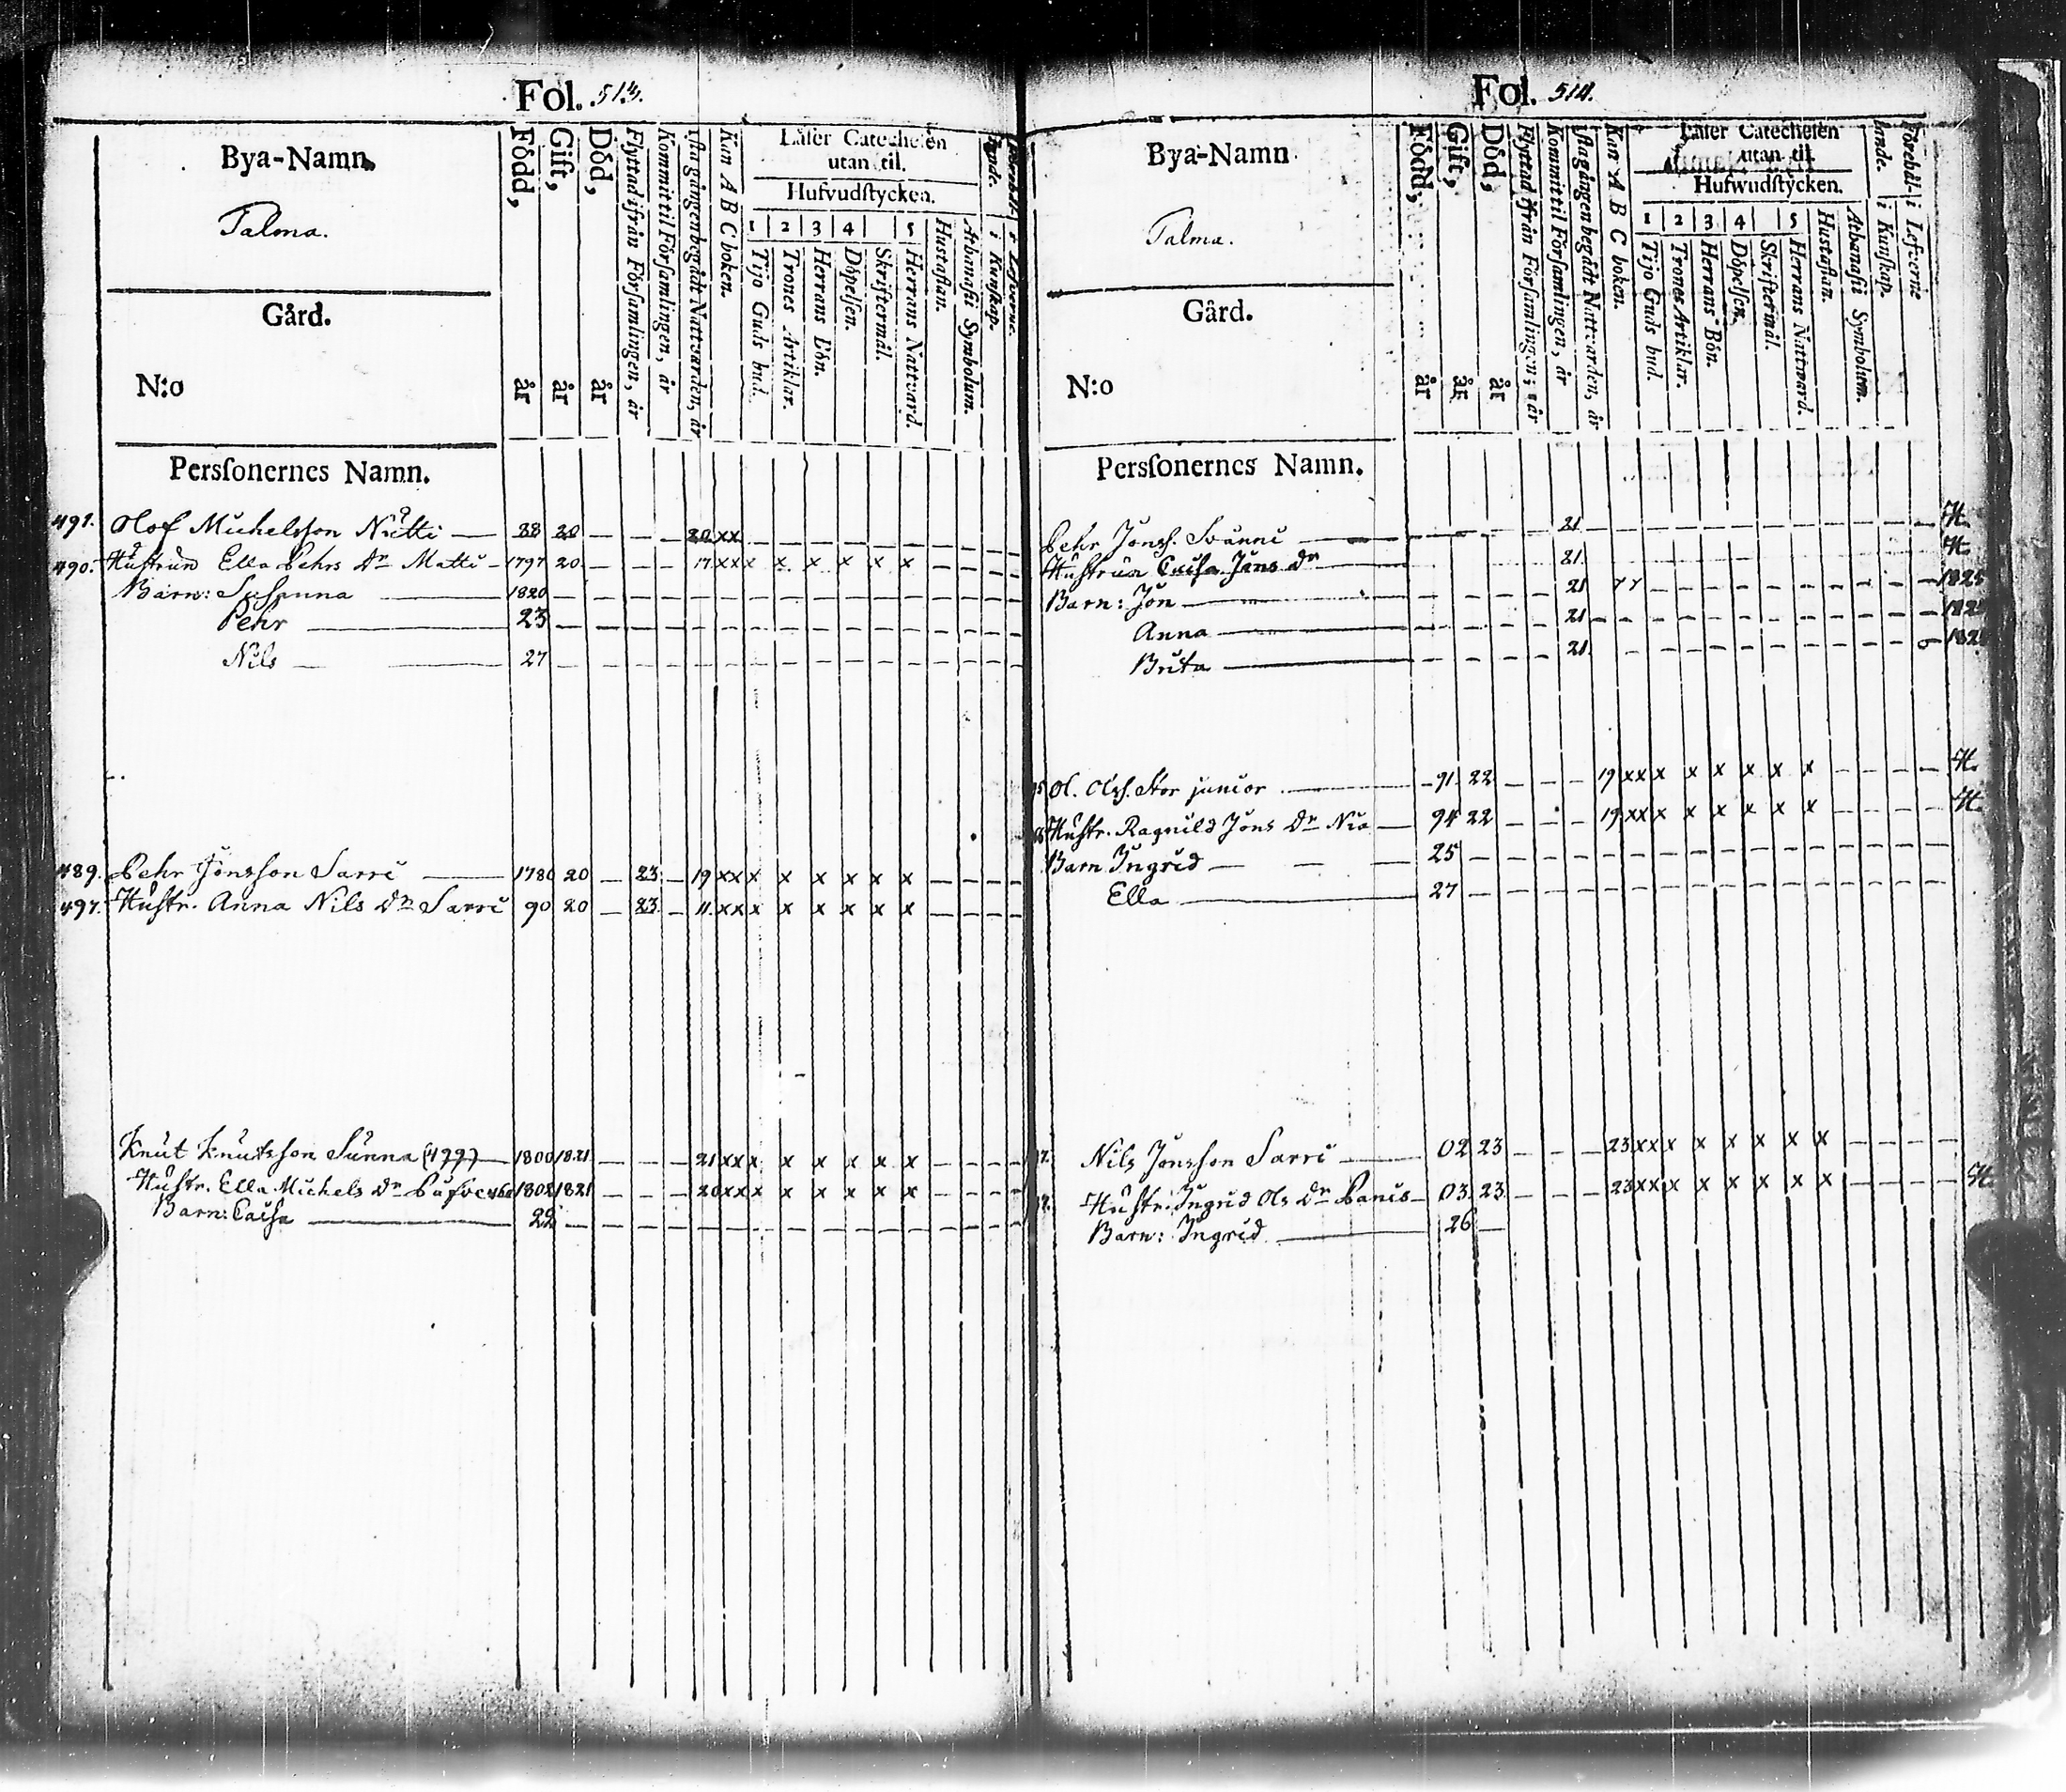 Fol. 513.
Bya-Namn
Talma.
Gård.
N:o
Persſonernes Namn.
Född, år
Gift, år
Död, år
Flyttad ifrån Förſamlingen, år
Kommit til Förſamlingen, år
1ſta gången begådt Nattvarden, år
Kan A B C boken.
Läſer Catecheſen
utan til.
Hufvudſtycken.
1 2 3 4 5
Tijo Guds bud.
Trones Artiklar.
Herrans Bön.
Döpelſen.
Skriftermål.
Herrans Nattvard.
Huſtaflan.
Athanaſii Symbolum.
i Kunſkap.
491. Olof Michelsſon Nutti — 28 20 — — — 20 xx — — — — — — — — —
490. Huſtrun Ella Pehrs Dr Matti — 1797 20 — — — 17 xx x x x x x x — — — —
Barn: Suſanna — 1820 — — — — — — — — — — — — — —
Pehr — 23 — — — — — — — — — — — — — —
Nils — 27 — — — — — — — — — — — — — —
489. Pehr Jonsſon Sarri — 1780 20 — 23 — 19 xx x x x x x x — — —
497. Huſtr. Anna Nils Dr Sarri 90 20 — 23 — 11 xx x x x x x x — — —
Knut Knutsſon Sunna (499) — 1800 1821 — — — 21 xx x x x x x x — — —
Huſtr. Ella Michels Dr 1802 1821 — — — 20 xx x x x x x x — — —
Barn: Caiſa — 22 — — — — — — — — — — — — — —
Fol. 514.
Bya-Namn
Talma.
Gård.
N:o
Persſonernes Namn.
Född, år
Gift, år
Död, år
Flyttad ifrån Förſamlingen, år
Kommit til Förſamlingen, år
1ſta gången begådt Nattvarden, år
Kan A B C boken.
Läſer Catecheſen
utan til.
Hufwudſtycken.
1 2 3 4 5
Tijo Guds bud.
Trones Artiklar.
Herrans Bön.
Döpelſen.
Skriftermål.
Herrans Nattward.
Huſtaflan.
Athanaſii Symbolum.
Förehållande.
i Kunſkap.
i Lefverne
Pehr Jonsſ. Svänni — — — — 21 — — — — — — — — — —
Huſtrun Caiſa Jons Dr — 21
Barn: Jon — — — — — 21 — — — — — — — — — — 1825
Anna — — — — — 21 — — — — — — — — — —
Brita — — — — — 21 — — — — — — — — — —
Ol. Olsſ. Stor junior — 91 22 — — — 19 xx x x x x x x — — — —
Huſtr. Ragnild Jons Dr Nia — 94 22 — — — 19 xx x x x x x x — — — —
Barn Ingrid — 25 — — — — — — — — — — — — — —
Ella — 27 — — — — — — — — — — — — — —
Nils Jonsſon Sarri — 02 23 — — — 23 xx x x x x x x — — — —
Huſtr. Ingrid Ols Dr Panis — 03 23 — — — 23 xx x x x x x x — — — —
Barn: Ingrid — 26 —